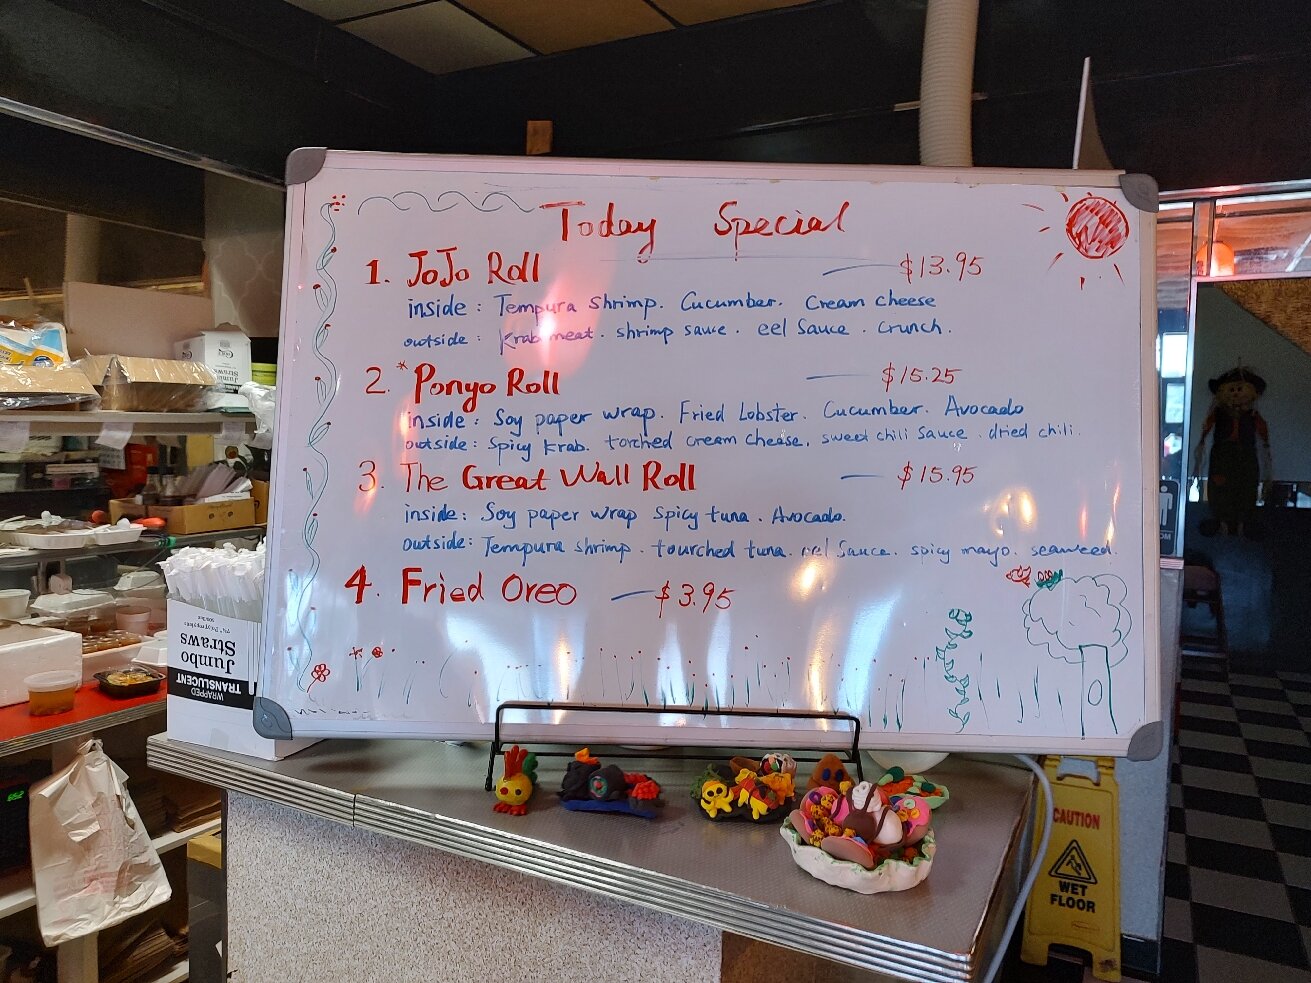 Today Special
1. JoJo Roll — $13.95
inside: Tempura shrimp. Cucumber. Cream cheese
outside: Krab meat. shrimp sauce. eel Sauce. Crunch.
2. *Ponyo Roll — $15.25
inside: Soy paper wrap. Fried Lobster. Cucumber. Avocado
outside: Spicy Krab. torched cream cheese. sweet chili Sauce. dried chili.
3. The Great Wall Roll — $15.95
inside: Soy paper wrap spicy tuna. Avocado.
outside: Tempura shrimp. tourched tuna. eel Sauce. spicy mayo. seaweed.
4. Fried Oreo — $3.95
WRAPPED
TRANSLUCENT
Jumbo
Straws
CAUTION
WET
FLOOR